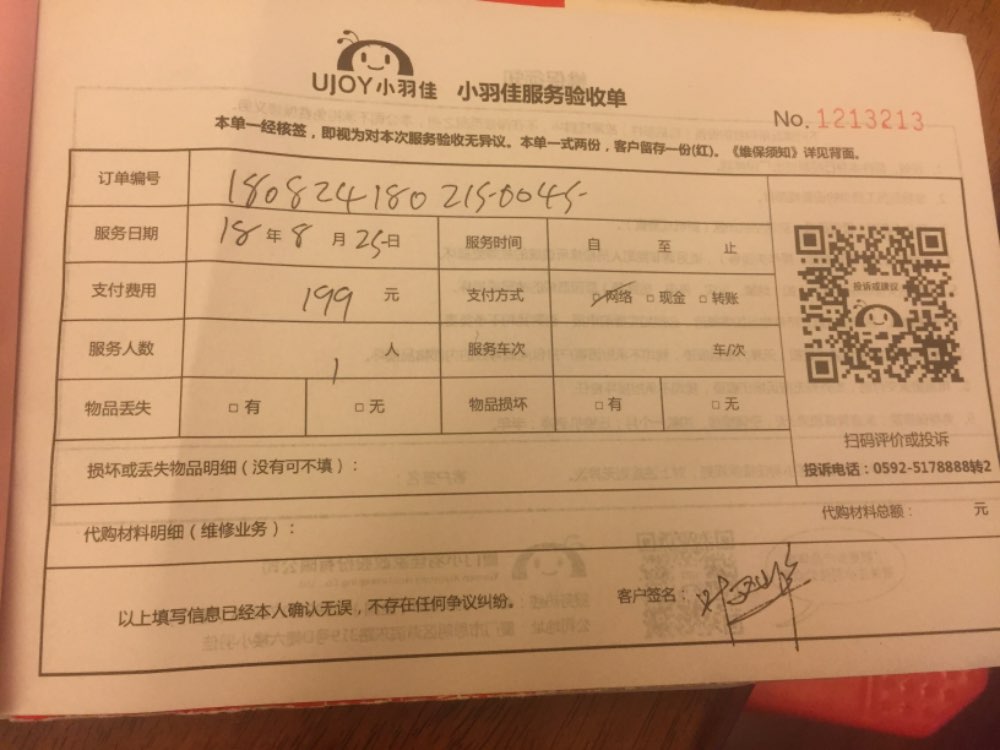 UJOY小羽佳 小羽佳服务验收单
No. 1213213
本单一经核签，即视为对本次服务验收无异议。本单一式两份，客户留存一份(红)。《维保须知》详见背面。
订单编号 180824180215-0045
服务日期 18年8月25日 服务时间 自 至 止
支付费用 199元 支付方式 ☑网络 □现金 □转账
投诉或建议
服务人数 1人 服务车次 车/次
物品丢失 □有 □无 物品损坏 □有 □无
扫码评价或投诉
损坏或丢失物品明细（没有可不填）：
投诉电话：0592-5178888转2
代购材料明细（维修业务）：
代购材料总额： 元
以上填写信息已经本人确认无误，不存在任何争议纠纷。
客户签名：